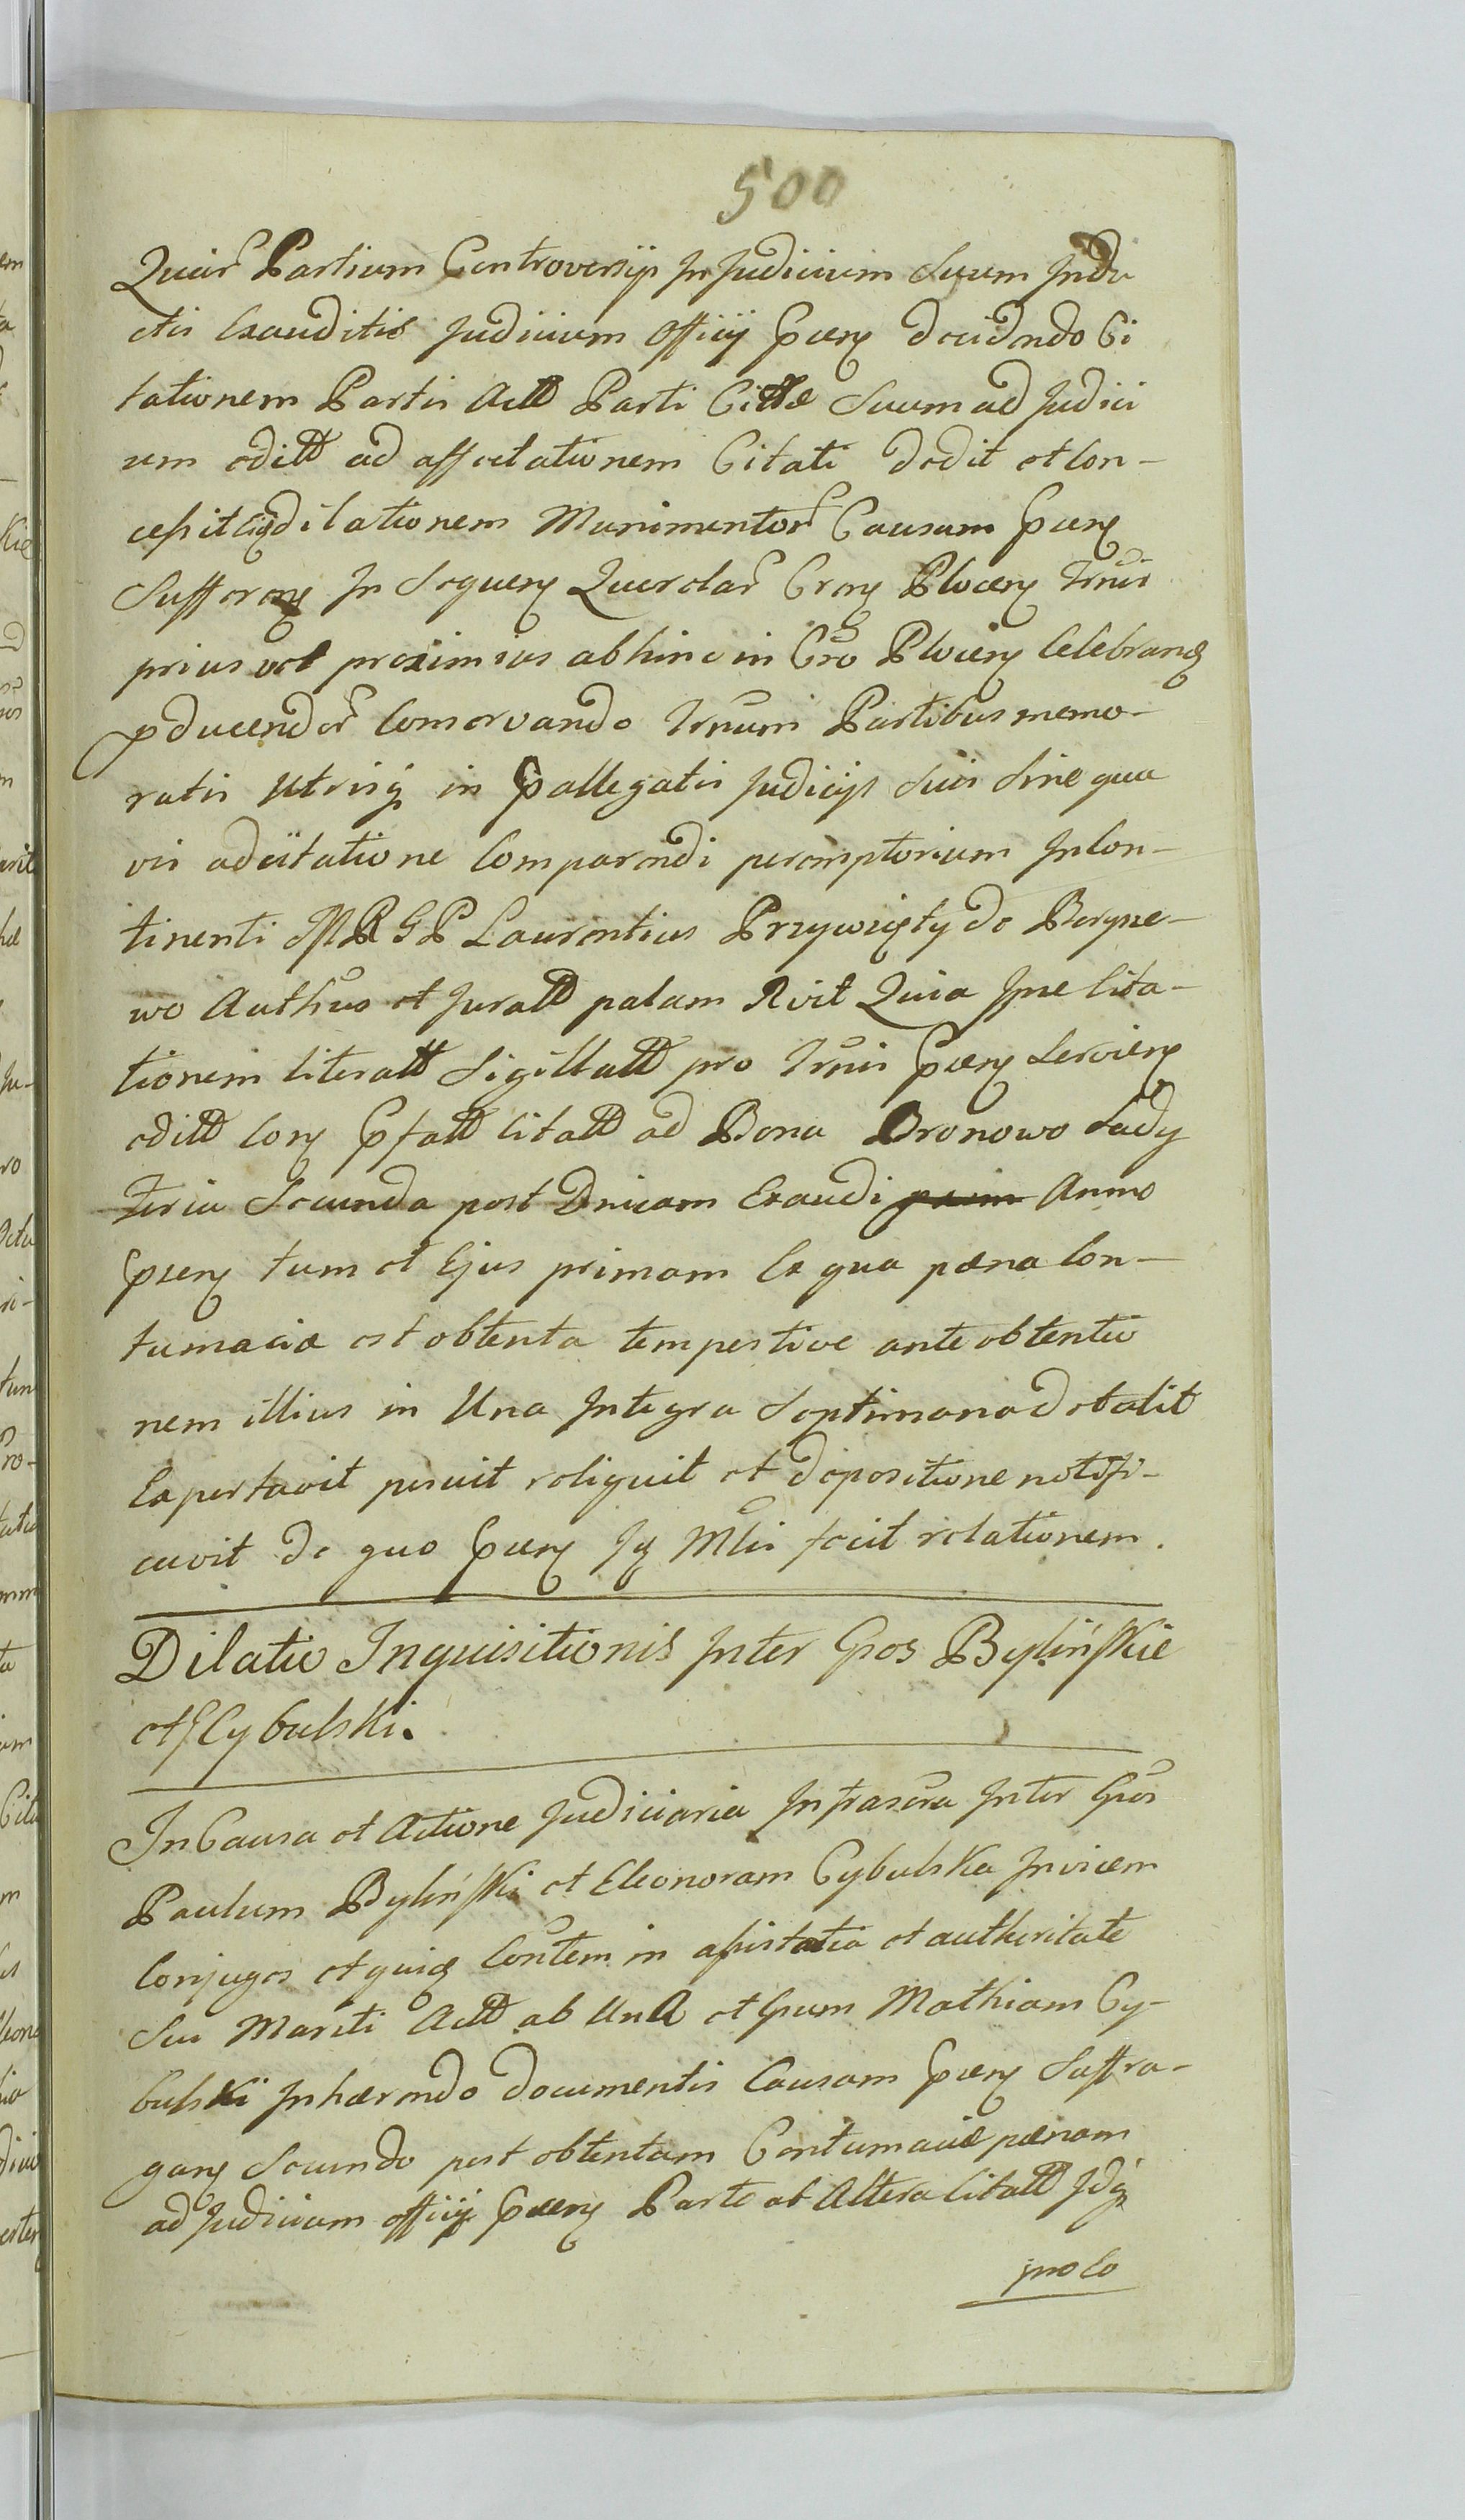 500
Quar Partium Controversijs In Judicium Suum Indu
ctis Exauditis Judicium Officij Praens decidendo Ci
tationem Partis Actt Parti Cittae Suum ad Judici
um editt ad affectationem Citati dedit et Con-
cessit Eiqd ilationem Munimentor Causam Praens
Sufferenx In Sequenx Querelar Cronx Plocenx Trnis
prius vel proximius abhinc in Cro Plocenx Celebrand
pducendor Conservando Trnum Partibus memo-
ratis utrisq in Praallegatis Judicijs Suis Sine qua
vis adcitatione Comparendi peremptorium In Con-
tinenti MRGP Laurentius Przywzięty de Borysze-
wo Authus et Juratt palam Rvit Quia Ipse Cita-
tionem literatt Sigillatt pro Trnis Praens Servienx
editt Conx Praefatt Citatt ad Bona Bronowo Sady
Feria Secunda post Dnicam Exaudi Anno
Praens tum et Ejus primam Ex qua paena Con-
tumaciae est obtenta tempestive ante obtentio
nem illius in Una Integra Septimana detulit
Exportavit posuit reliquit et depositione notifi-
cavit de quo Praens Iq Mlis fecit relationem.
Dilatio Inquisitionis Inter Gsos Bylińskie
et Cybulski.
In Causa et Actione Judiciaria Infrascra Inter Gsos
Paulum Byliński et Eleonoram Cybulska Invicem
Conjuges et quidq Contem in assistentia et authoritate
Sui Mariti Actt ab Una et Gsum Mathiam Cy-
bulski Inhaerendo documentis Causam Praens Suffra-
ganx Secundo post obtentam Contumaciae paenam
ad Judicium officij Praens Parte ab Altera Citatt Idq